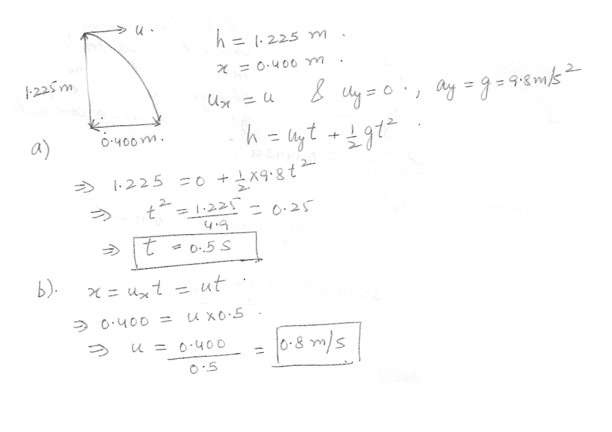 → u.
h = 1.225 m .
x = 0.400 m .
1.225 m
uₓ = u & u_y = 0 . , a_y = g = 9.8 m/s²
a)
0.400 m.
h = u_y t + 1/2 g t² .
⇒ 1.225 = 0 + 1/2 × 9.8 t²
⇒ t² = 1.225/4.9 = 0.25
⇒ t = 0.5 s
b). x = uₓt = ut .
⇒ 0.400 = u × 0.5 .
⇒ u = 0.400/0.5 = 0.8 m/s